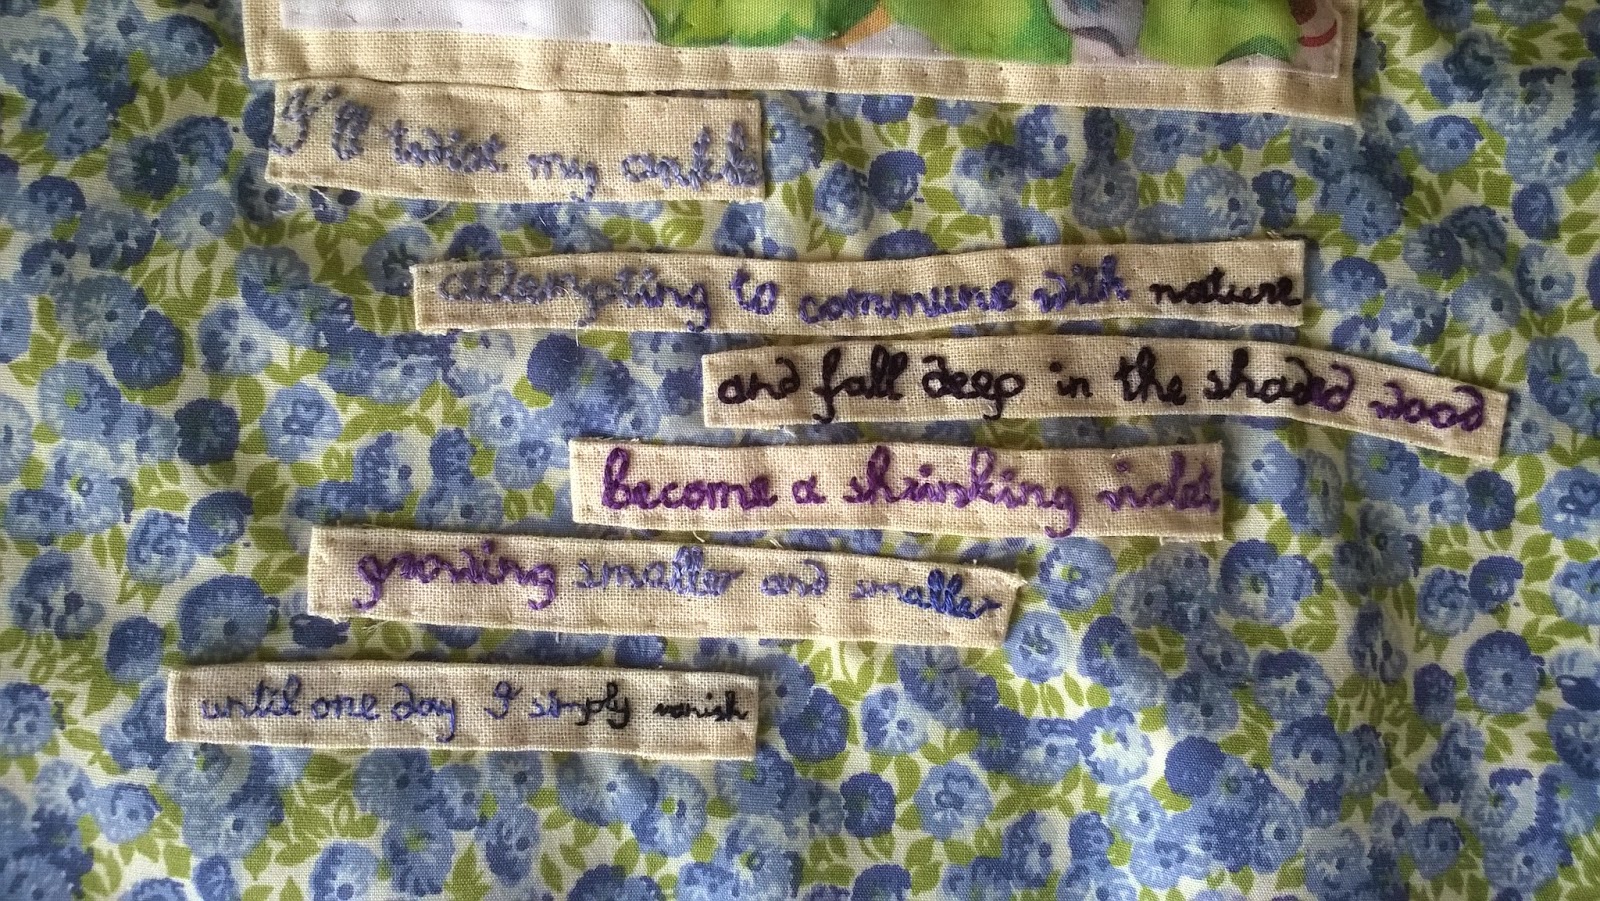 I'll twist my ankle
attempting to commune with nature
and fall deep in the shaded wood
become a shrinking violet
growing smaller and smaller
until one day I simply vanish